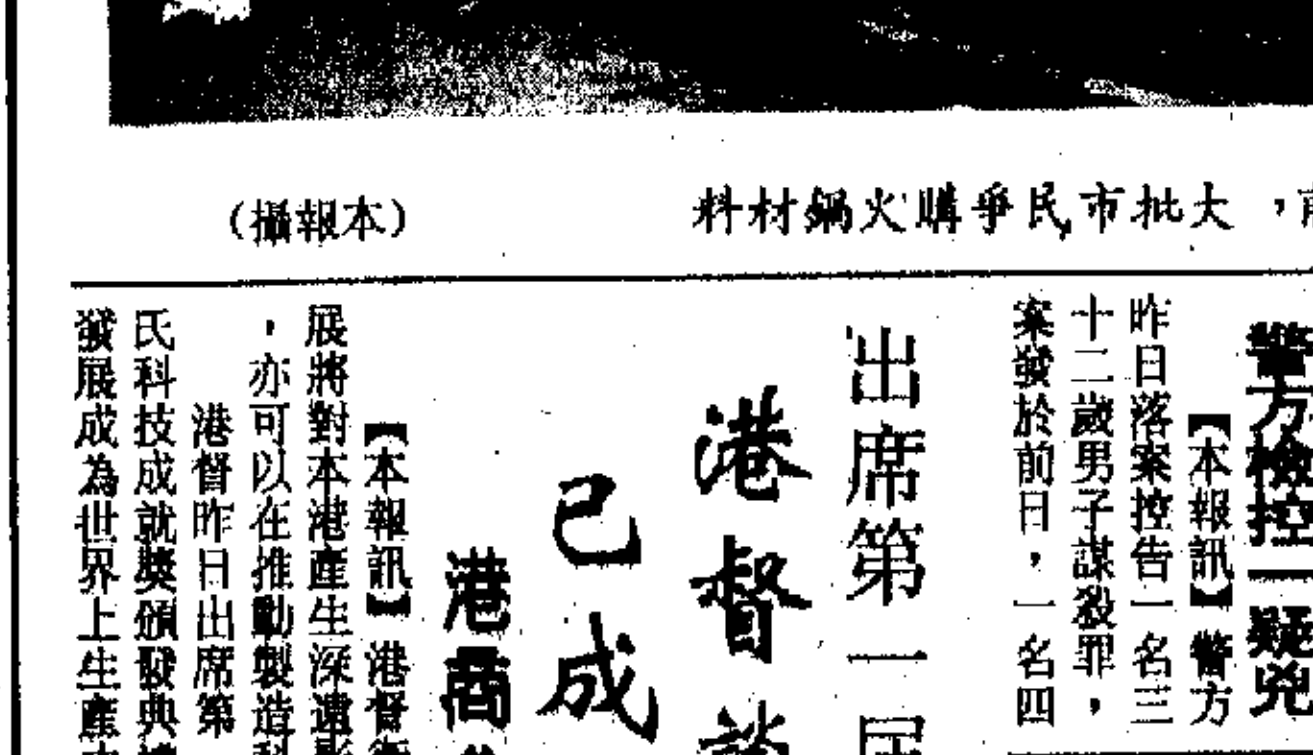 ，大批市民爭購火鍋材料
（本報攝）
警方檢控一疑兇
【本報訊】警方
昨日落案控告一名三
十二歲男子謀殺罪，
案發於前日，一名四
出席第一屆
港督
已成
港商
【本報訊】港督
展將對本港產生深遠
，亦可以在推動製造
港督昨日出席第
氏科技成就獎頒發典
發展成為世界上生產